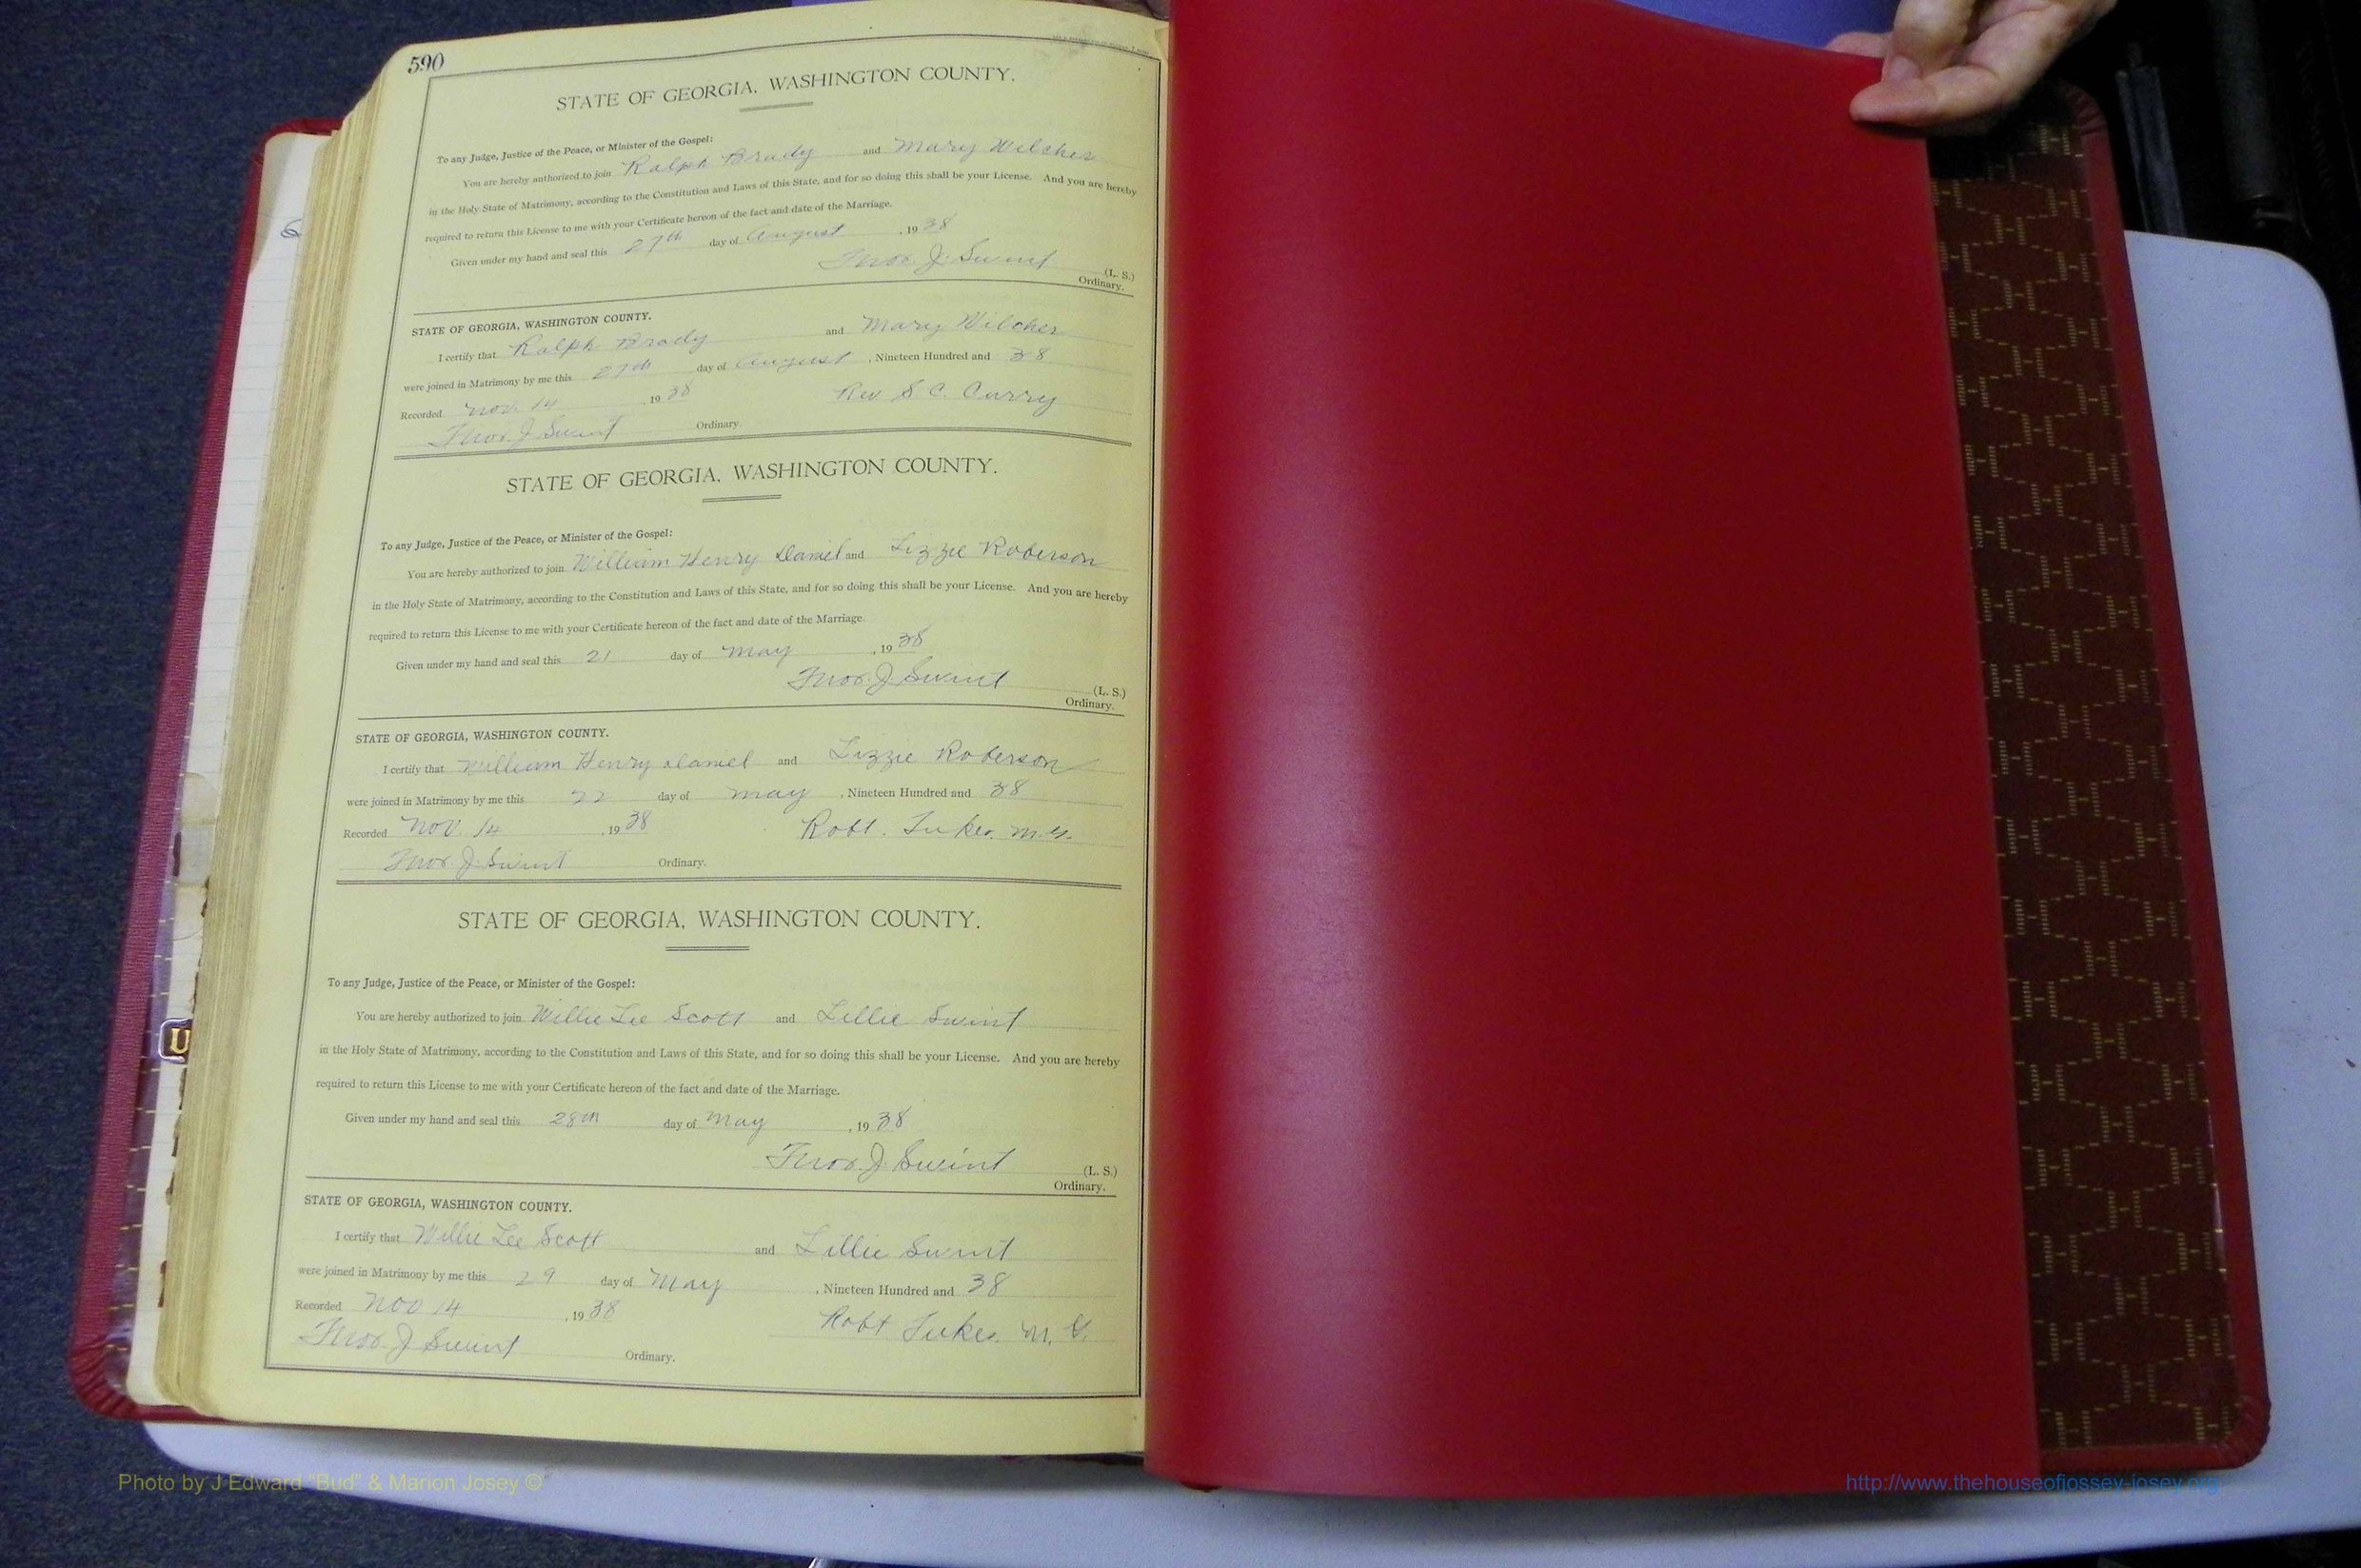 590
STATE OF GEORGIA, WASHINGTON COUNTY.
To any Judge, Justice of the Peace, or Minister of the Gospel:
You are hereby authorized to join Ralph Brady and Mary Wilcher
in the Holy State of Matrimony, according to the Constitution and Laws of this State, and for so doing this shall be your License. And you are hereby
required to return this License to me with your Certificate hereon of the fact and date of the Marriage.
Given under my hand and seal this 27th day of August, 1938
Thos. J. Swint (L. S.)
Ordinary.
STATE OF GEORGIA, WASHINGTON COUNTY.
I certify that Ralph Brady and Mary Wilcher
were joined in Matrimony by me this 27th day of August, Nineteen Hundred and 38
Recorded Nov. 14, 1938 Rev S. C. Curry
Thos. J. Swint Ordinary.
STATE OF GEORGIA, WASHINGTON COUNTY.
To any Judge, Justice of the Peace, or Minister of the Gospel:
You are hereby authorized to join William Henry Daniel and Lizzie Roberson
in the Holy State of Matrimony, according to the Constitution and Laws of this State, and for so doing this shall be your License. And you are hereby
required to return this License to me with your Certificate hereon of the fact and date of the Marriage.
Given under my hand and seal this 21 day of May, 1938
Thos. J. Swint (L. S.)
Ordinary.
STATE OF GEORGIA, WASHINGTON COUNTY.
I certify that William Henry Daniel and Lizzie Roberson
were joined in Matrimony by me this 22 day of May, Nineteen Hundred and 38
Recorded Nov. 14, 1938 Robt. M.G.
Thos. J. Swint Ordinary.
STATE OF GEORGIA, WASHINGTON COUNTY.
To any Judge, Justice of the Peace, or Minister of the Gospel:
You are hereby authorized to join Willie Lee Scott and Lillie Swint
in the Holy State of Matrimony, according to the Constitution and Laws of this State, and for so doing this shall be your License. And you are hereby
required to return this License to me with your Certificate hereon of the fact and date of the Marriage.
Given under my hand and seal this 28th day of May, 1938
Thos. J. Swint (L. S.)
Ordinary.
STATE OF GEORGIA, WASHINGTON COUNTY.
I certify that Willie Lee Scott and Lillie Swint
were joined in Matrimony by me this 29 day of May, Nineteen Hundred and 38
Recorded Nov 14, 1938 Robt M. G.
Thos. J. Swint Ordinary.
U
Photo by J Edward "Bud" & Marion Josey ©
http://www.thehouseofjossey-josey.org